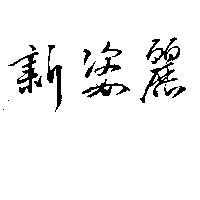 新姿麗